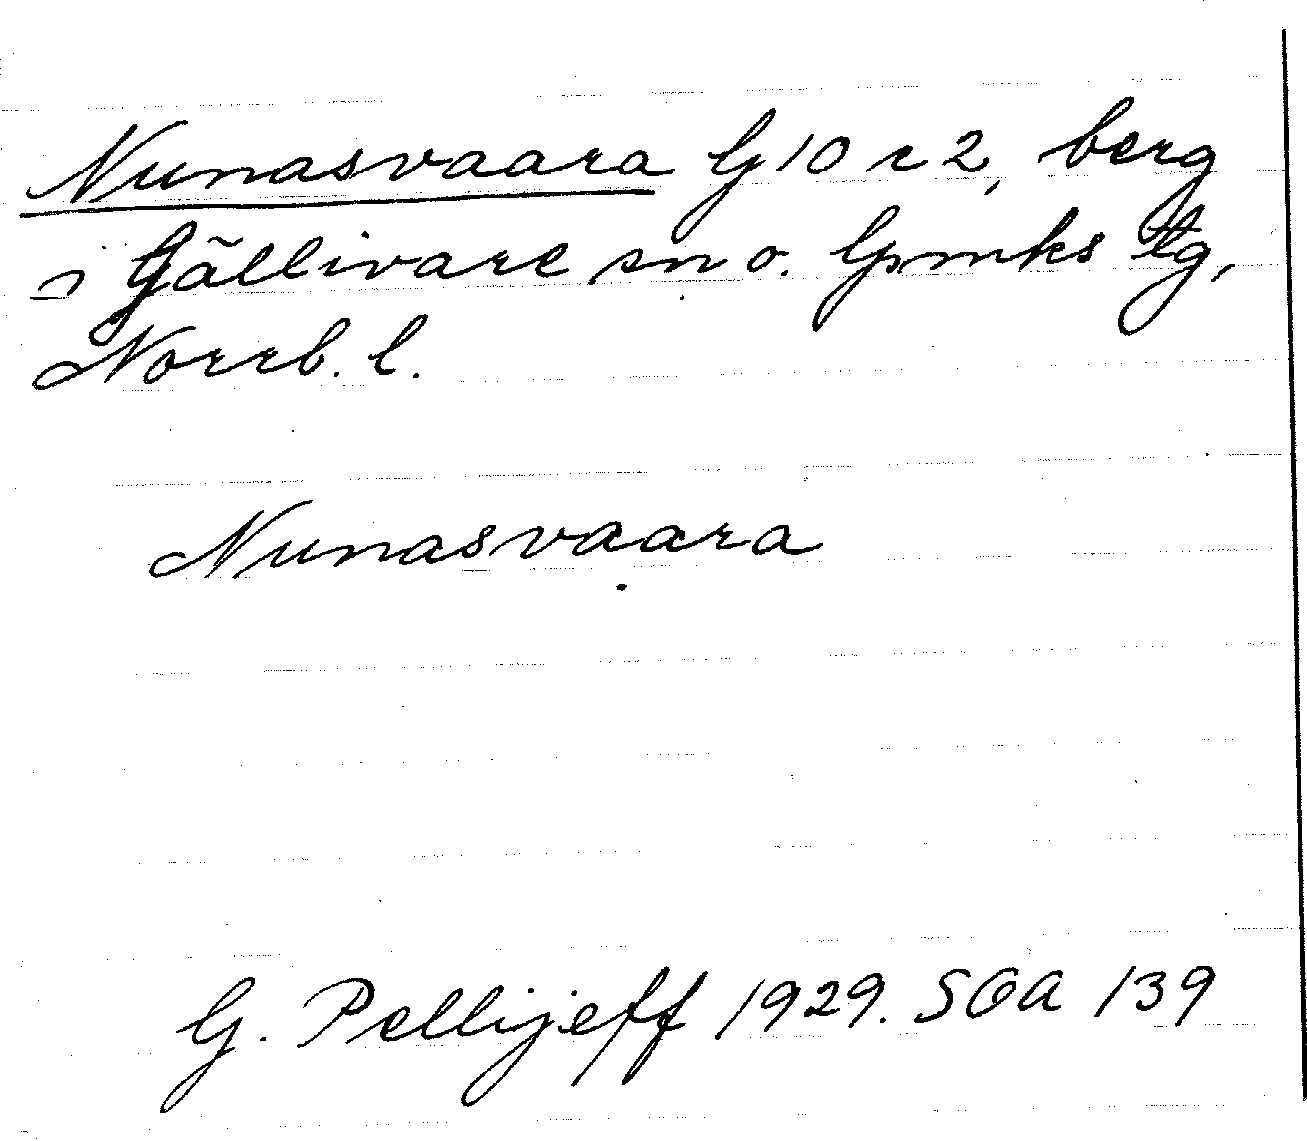 Nunasvaara G 10 r 2, berg
i Gällivare sn o. lpmks tg,
Norrb. l.
Nunasvaara
G. Pellijeff 1929. SOA 139